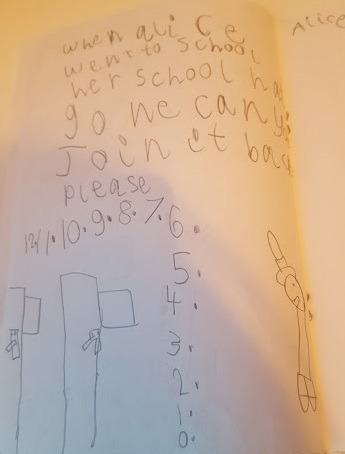 when alice
went to school
her school ha
go we can
Join it bac
please
12/1.10.9.8.7.6.
5.
4.
3.
2.
1.
0.
Alice